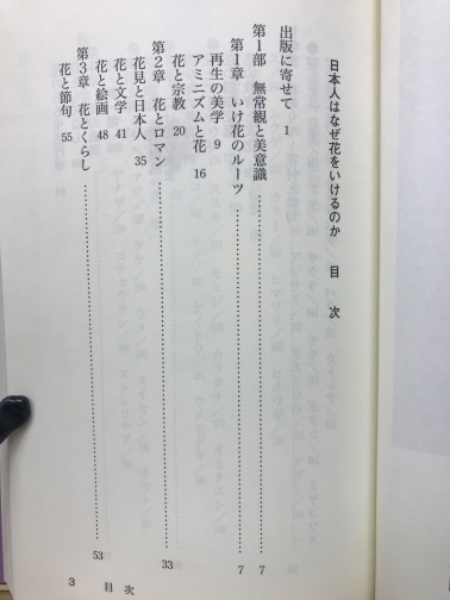 日本人はなぜ花をいけるのか 目次
出版に寄せて 1
第1部 無常観と美意識 7
第1章 いけ花のルーツ 7
再生の美学 9
アミニズムと花 16
花と宗教 20
第2章 花とロマン 33
花見と日本人 35
花と文学 41
花と絵画 48
第3章 花とくらし 53
花と節句 55
3 目次